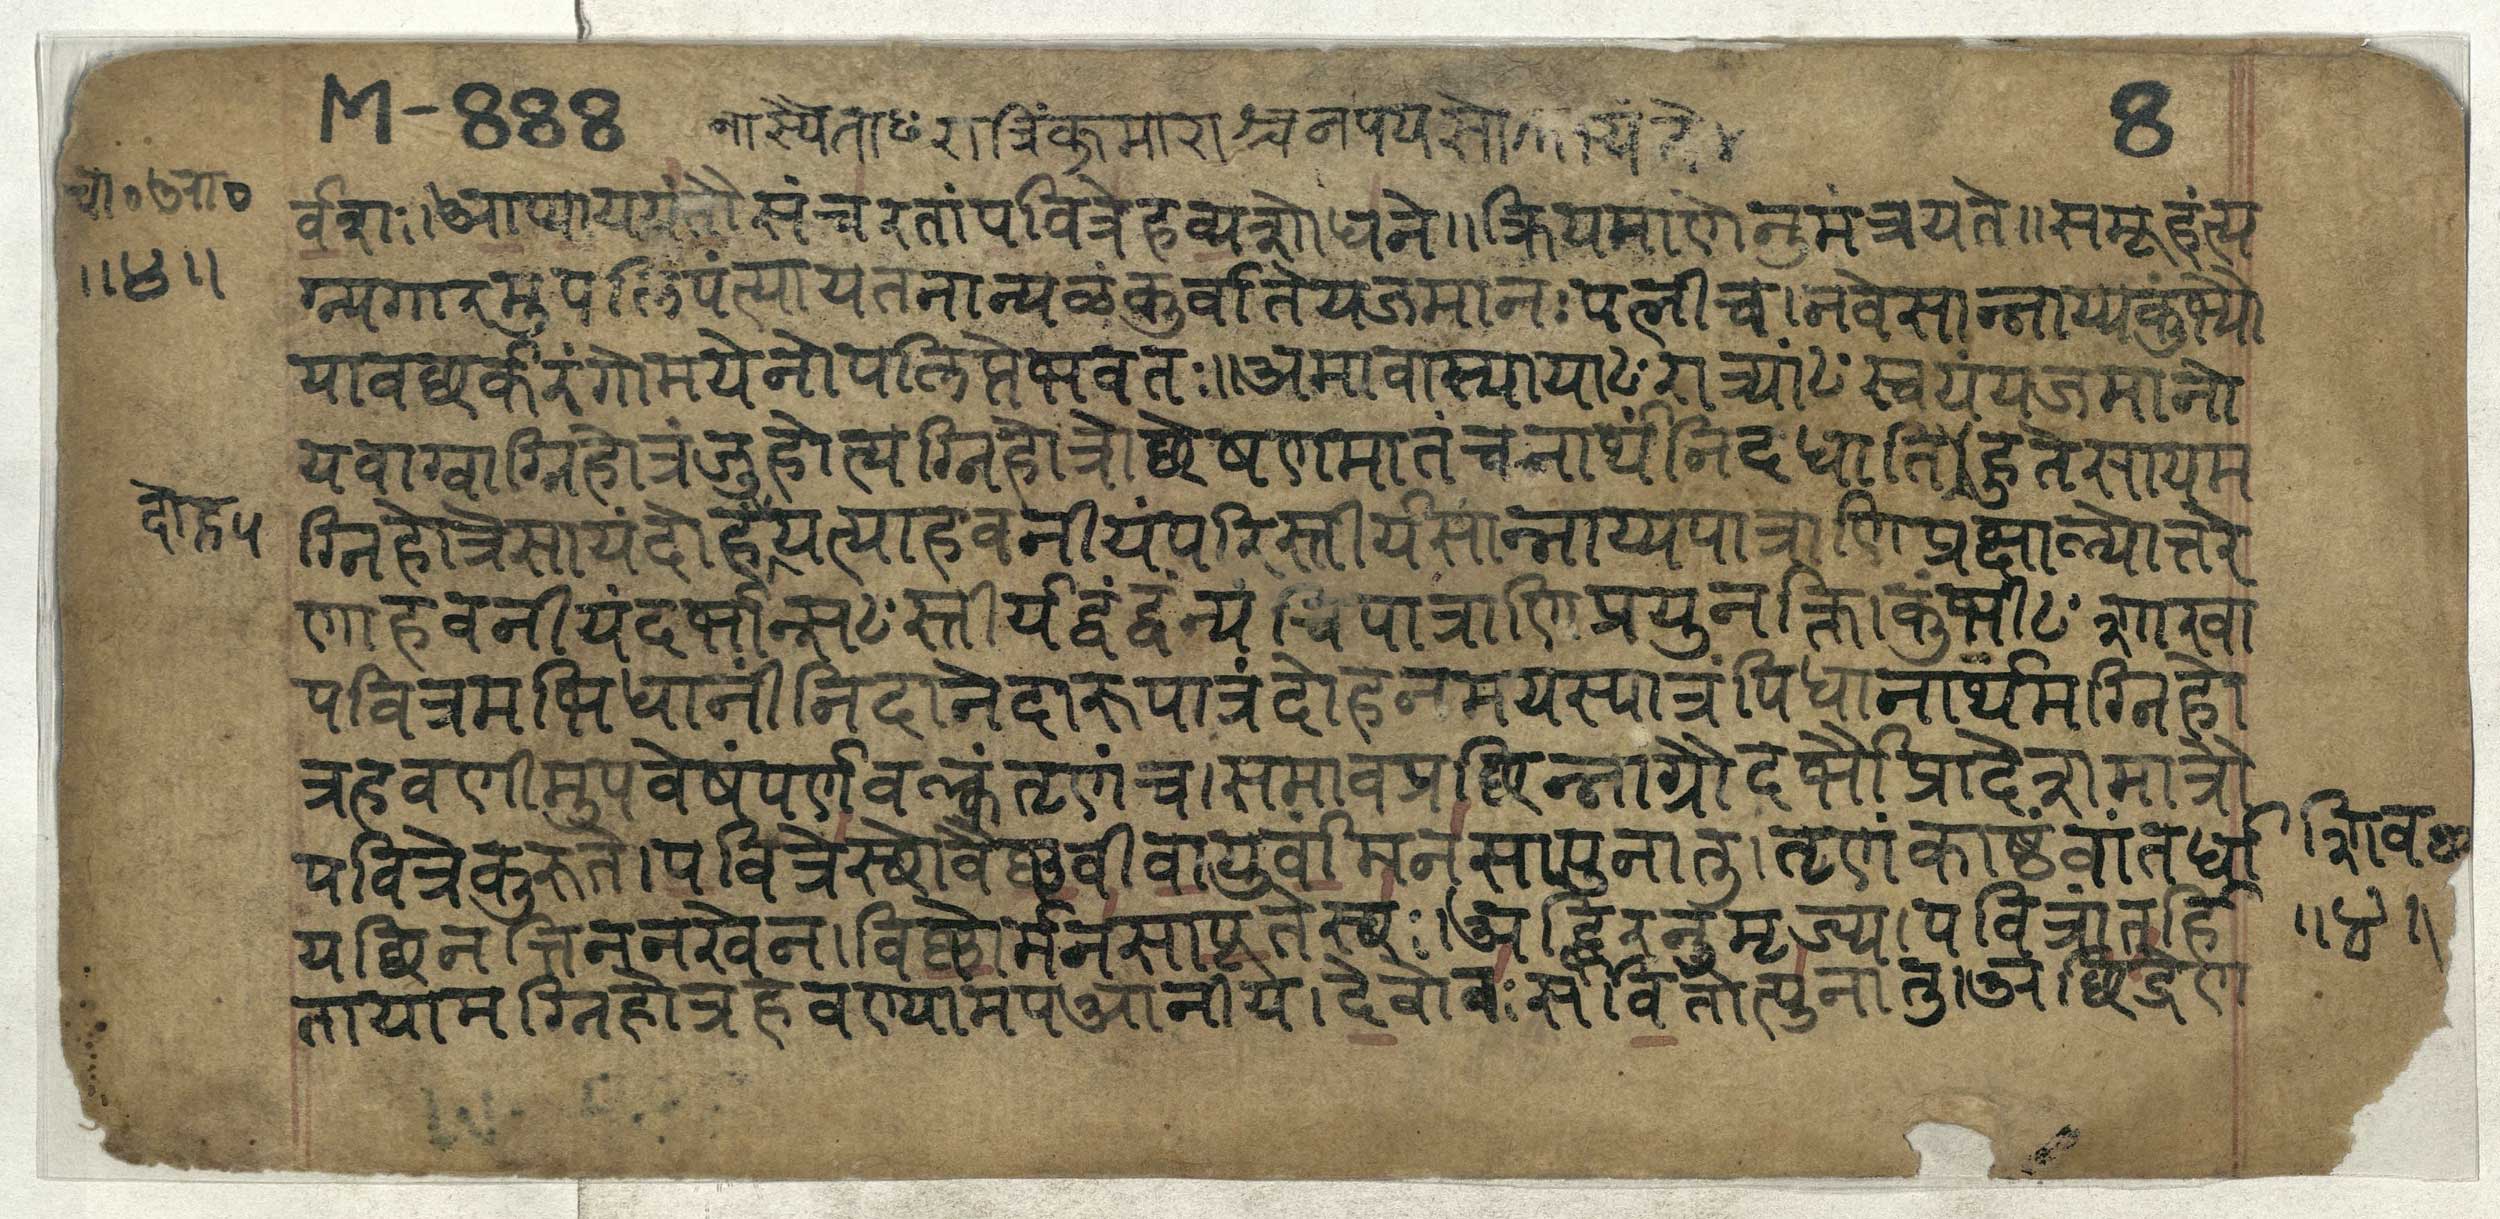 M-888
8
नास्यैताꣳ रात्रिंकुमाराश्चनपयसो
॥४॥
र्वशाः।आप्याययंतौसंचरतांपवित्रेहव्यशोधने॥क्रियमाणेनुमंत्रयते॥समूहंत्य
ग्न्यगारमुपलिंपंत्यायतनान्यळंकुर्वातेयजमानःपत्नीच।नवेसान्नाय्यकुंभ्यौ
यावच्छर्करंगोमयेनोपलिप्तेभवतः॥अमावास्यायाꣳरात्र्याꣳस्वयंयजमानो
यवाग्वाग्निहोत्रंजुहोत्यग्निहोत्रोच्छेषणमातंचनार्थंनिदधाति।हुतेसायम
ग्निहोत्रेसायंदोहंयत्याहवनीयंपरिस्तीर्यसान्नाय्यपात्राणिप्रक्षाल्योत्तरे
दोहप
णाहवनीयंदर्भान्सꣳस्तीर्यद्वंद्वंन्यंचिपात्राणिप्रयुनक्ति।कुंभीꣳशाखा
पवित्रमभिधानींनिदानेदारुपात्रंदोहनमयस्पात्रंपिधानार्थमग्निहो
त्रहवणीमुपवेषंपर्णवल्कंतृणंच।समावप्रच्छिन्नाग्रौदर्भौप्रादेशमात्रौ
पवित्रेकुरुते।पवित्रेस्थोवैष्णवीवायुर्वांमनसापुनातु।तृणंकाष्ठंवांतर्धा
यच्छिनत्तिननखेन।विष्णोर्मनसापूतेस्थः।अद्भिरनुमृज्य।पवित्रांतर्हि
॥४॥
तायामग्निहोत्रहवण्यामपआनीय।देवोवःसवितोत्पुनातु।अच्छिद्रेण